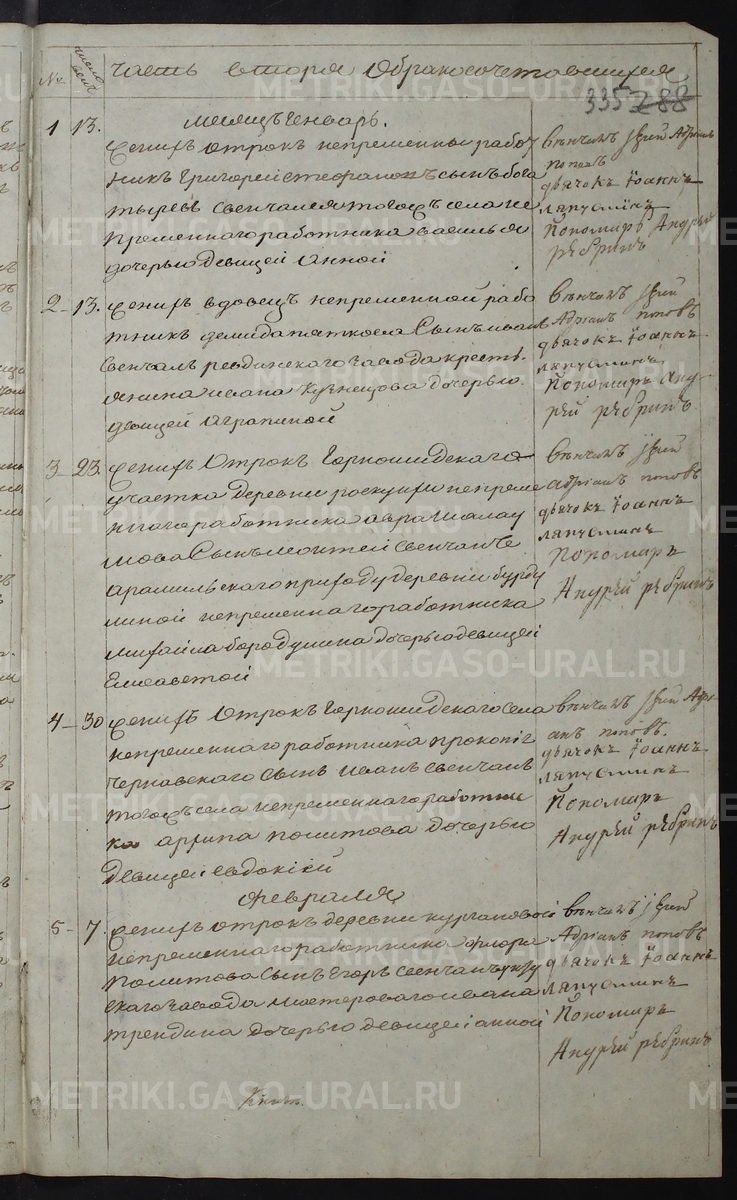 № число дней часть вторая О бракосочетавшихся
335 288
месяцъ Генварь.
1 13. жених отрокъ непременный работ
никъ Григорей стефановъ сынъ бога
тыревъ свенчался тогожъ села не
пременнаго работника василья
дочерью девицей Анной
венчалъ Иерей Адрианъ
поповъ
дьячокъ Iоаннъ
ляпустинъ
Пономарь Андрей
рѣбринъ
2 13. жених вдовецъ непременной рабо
тникъ демида сынъ иванъ
свенчалъ ревдинского завода крестья
янина ивана Кузнецова дочерью
девицей Аграпиной
вѣнчалъ Иерей
Адрианъ поповъ
дьячокъ Iоаннъ
ляпустинъ
Пономарь Анд
рей рѣбринъ
3 23. жених отрокъ Горношидскаго
участка деревни непреме
ннаго работника
сынъ моисей свенчанъ
арамильскаго приходу деревни бурду
миной непременнаго работника
михаила бородулина дочерью девицей
Елисаветой
вѣнчалъ Иерей
адрианъ поповъ
дьячокъ Iоаннъ
ляпустинъ
Пономарь
Андрей рѣбринъ
4 30 жених отрокъ Горношидскаго села
непременнаго работника прокопия
Чернавского сынъ иванъ свенчанъ
тогожъ села непременнаго работни
ка архипа политова дочерью
девицей евдокией
вѣнчалъ Иерей Адри
анъ поповъ.
дьячокъ Iоаннъ
ляпустинъ
Пономарь
Андрей рѣбринъ
Февраля
5 7. жених отрокъ деревни кургановой
непременнаго работника флора
политова сынъ Егоръ свенчанъ
скаго завода мастероваго ивана
трендина дочерью девицей анной
вѣнчалъ Иерей
Адрианъ поповъ
дьячокъ Iоаннъ
ляпустинъ
Пономарь
Андрей рѣбринъ
METRIKI.GASO-URAL.RU